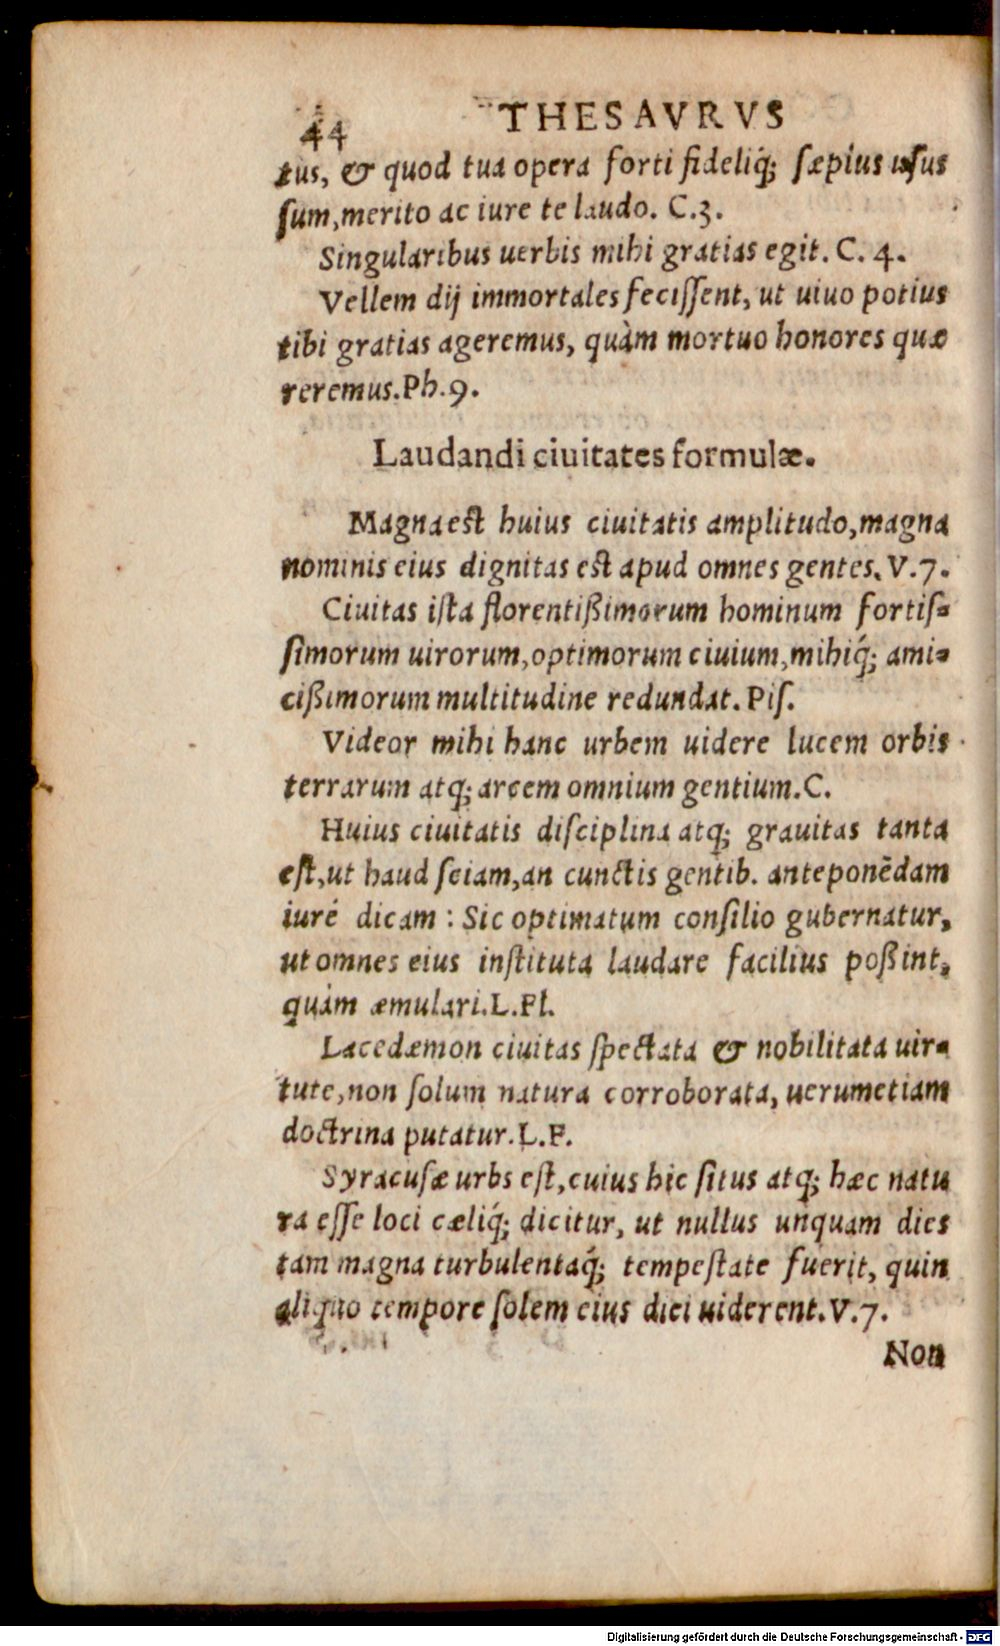 44 THESAVRVS
tus, & quod tua opera forti fideliq́; sæpius usus
sum, merito ac iure te laudo. C.3.
Singularibus uerbis mihi gratias egit. C. 4.
Vellem dij immortales fecissent, ut uiuo potius
tibi gratias ageremus, quàm mortuo honores quæ
reremus. Ph. 9.
Laudandi ciuitates formulæ.
Magna est huius ciuitatis amplitudo, magna
nominis eius dignitas est apud omnes gentes. V.7.
Ciuitas ista florentißimorum hominum fortis-
simorum uirorum, optimorum ciuium, mihiq́; ami-
cißimorum multitudine redundat. Pis.
Videor mihi hanc urbem uidere lucem orbis
terrarum atq; arcem omnium gentium. C.
Huius ciuitatis disciplina atq; grauitas tanta
est, ut haud sciam, an cunctis gentib. anteponẽdam
iuré dicam : Sic optimatum consilio gubernatur,
ut omnes eius instituta laudare facilius poßint,
quàm æmulari. L.Fl.
Lacedæmon ciuitas spectata & nobilitata uir-
tute, non solum natura corroborata, uerumetiam
doctrina putatur. L.F.
Syracusæ urbs est, cuius hic situs atq; hæc natu
ra esse loci cæliq́; dicitur, ut nullus unquam dies
tam magna turbulentaq́; tempestate fuerit, quin
aliquo tempore solem eius diei uiderent. V.7.
Non
Digitalisierung gefördert durch die Deutsche Forschungsgemeinschaft - DFG